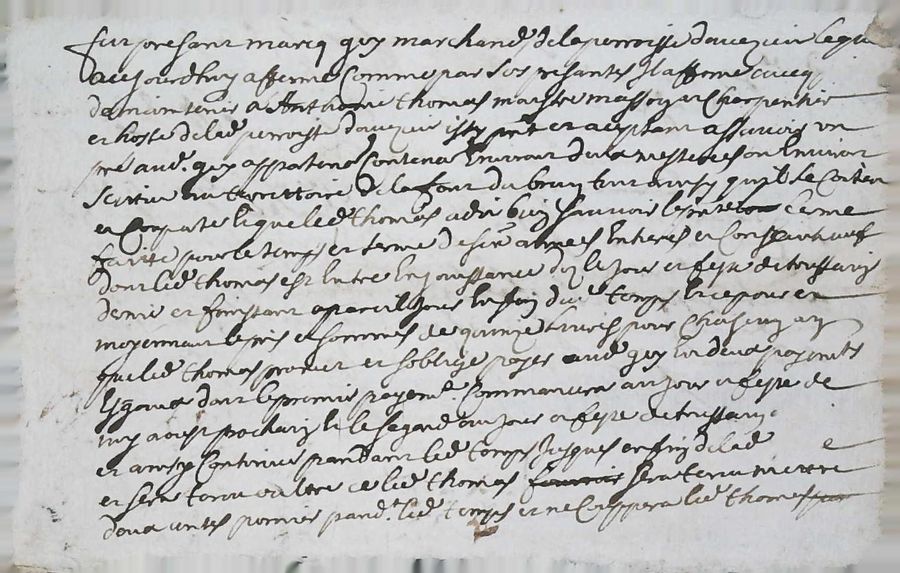 fut presant marcq guy marchand de la parroisse davezieu lequel
aujourdhuy afferme comme par ses presantes il afferme avecq
de maintenir a Anthoine thomas maistre massoy et charpentier
et hoste de lad parroisse davezieu isy pnt et aceptant assavoir un
pre aud. guy appartena contenant environ deux mesteres ou environ
scitue au territoire de la font du
et conporte lequel led thomas a dit bien sauvoir
pour le temps et terme de six annees entieres et consecutives
dont led thomas est entre en jouissance dez le jour et feste de toussaintz
dernie et finissant a pareil jour en fin dud temps et ce pour et
moyennant le pris et somme de quinze livres pour chascung an
que led thomas promet et soblige payer aud guy en deux payemts
esgaux dont le premier payemt. commancera au jour et feste de
my aoust prochain et le segond au jour et feste de toussaing
et ainsy continuer pandant led temps jusques en fin dicelle
et sera tenu oultre ce led thomas sera tenu mettre
pand.t led temps et ne couppera led thomas